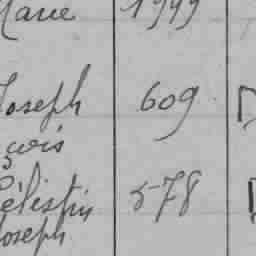 Marie 1949
Joseph 609
çois
Célestin 578
Joseph